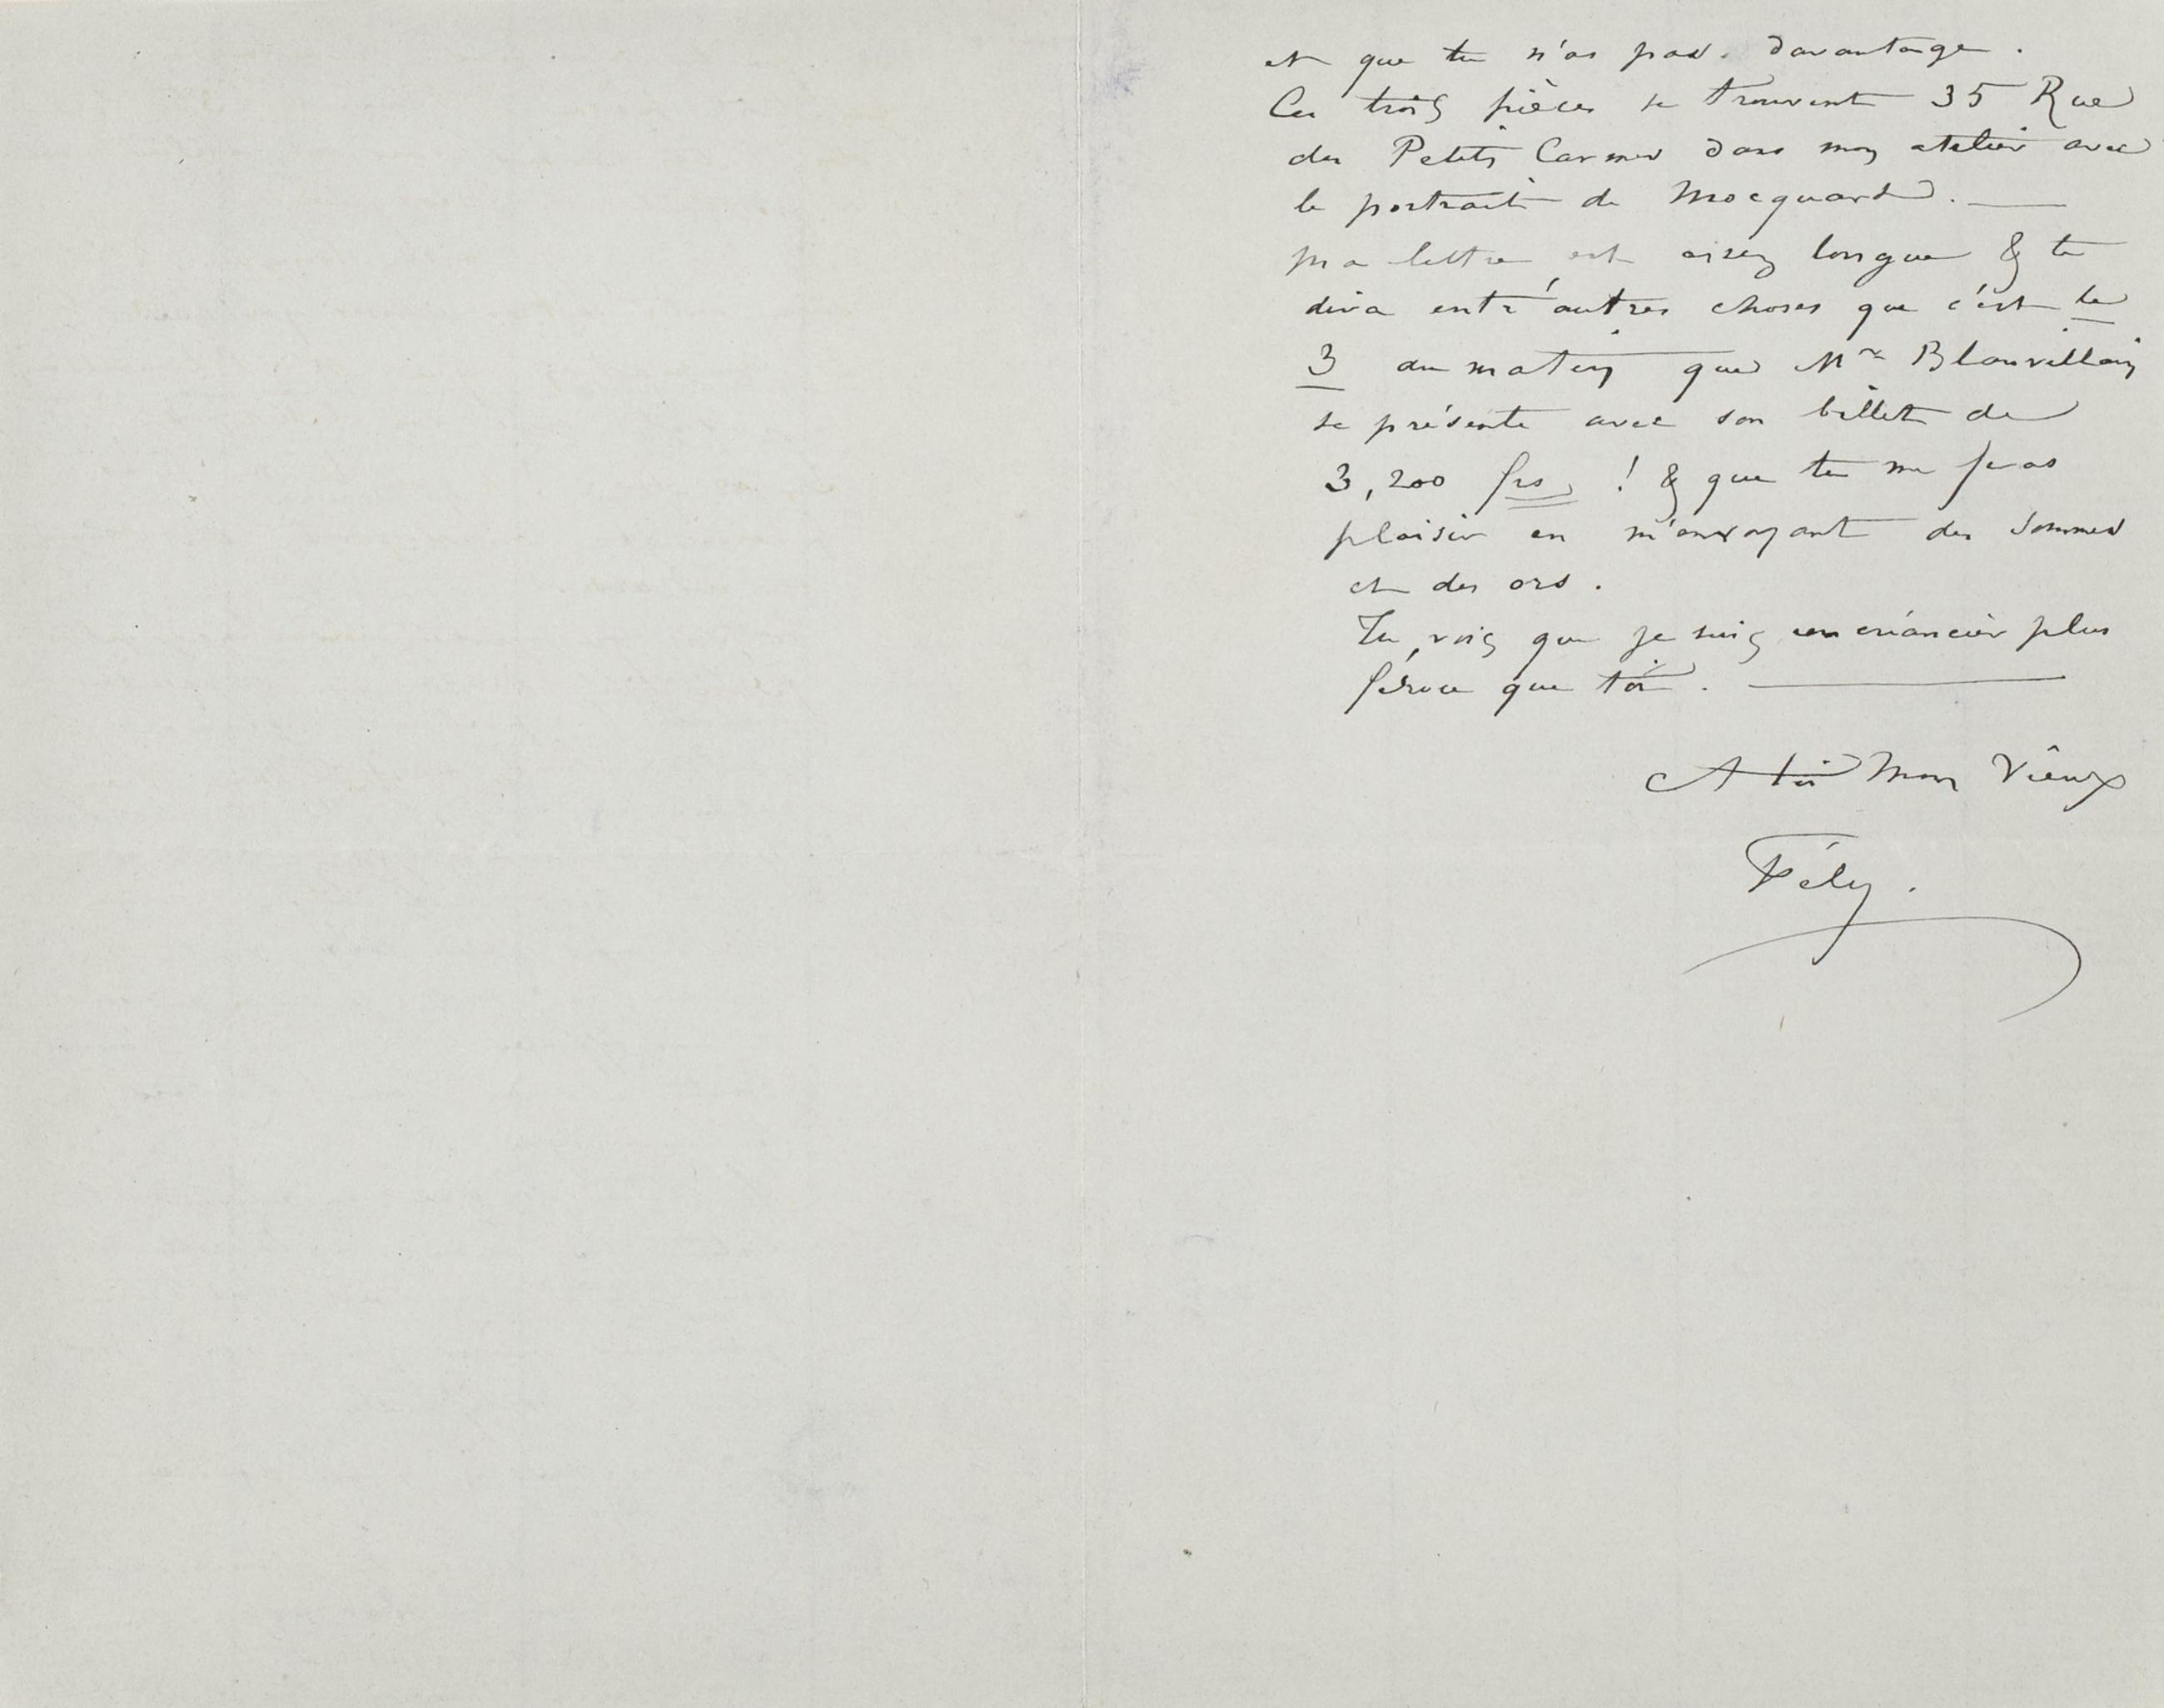 et que tu n'as pas davantage.
Ces trois pièces se trouvent 35 Rue
des Petits Carmes dans mon atelier avec
le portrait de Mocquard. —
Ma lettre est assez longue & te
dira entr'autres choses que c'est le
3 au matin que Mr Blanvillain
se présente avec son billet de
3,200 frs ! & que tu me feras
plaisir en m'envoyant des sommes
et des ors.
Tu vois que je suis un créancier plus
féroce que toi. —
A toi Mon Vieux
Fély.